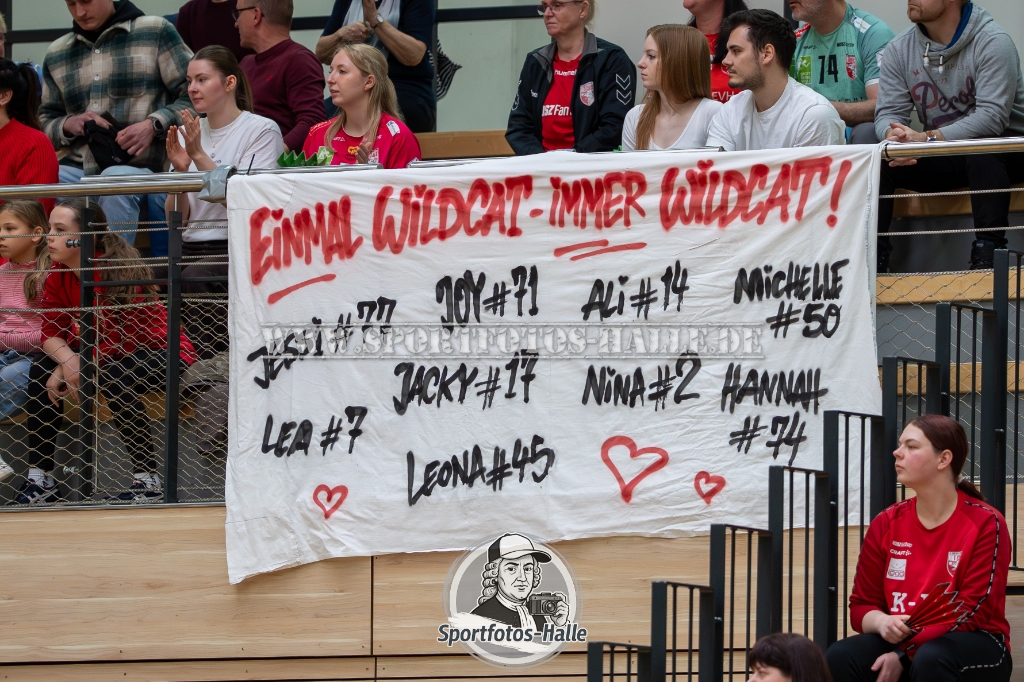 EINMAL WILDCAT - IMMER WILDCAT!
JESSI #77 JOY #71 ALI #14 MICHELLE #50
WWW.SPORTFOTOS-HALLE.DE
LEA #7 JACKY #17 NINA #2 HANNAH #74
LEONA #45
Sportfotos-Halle
74
K-